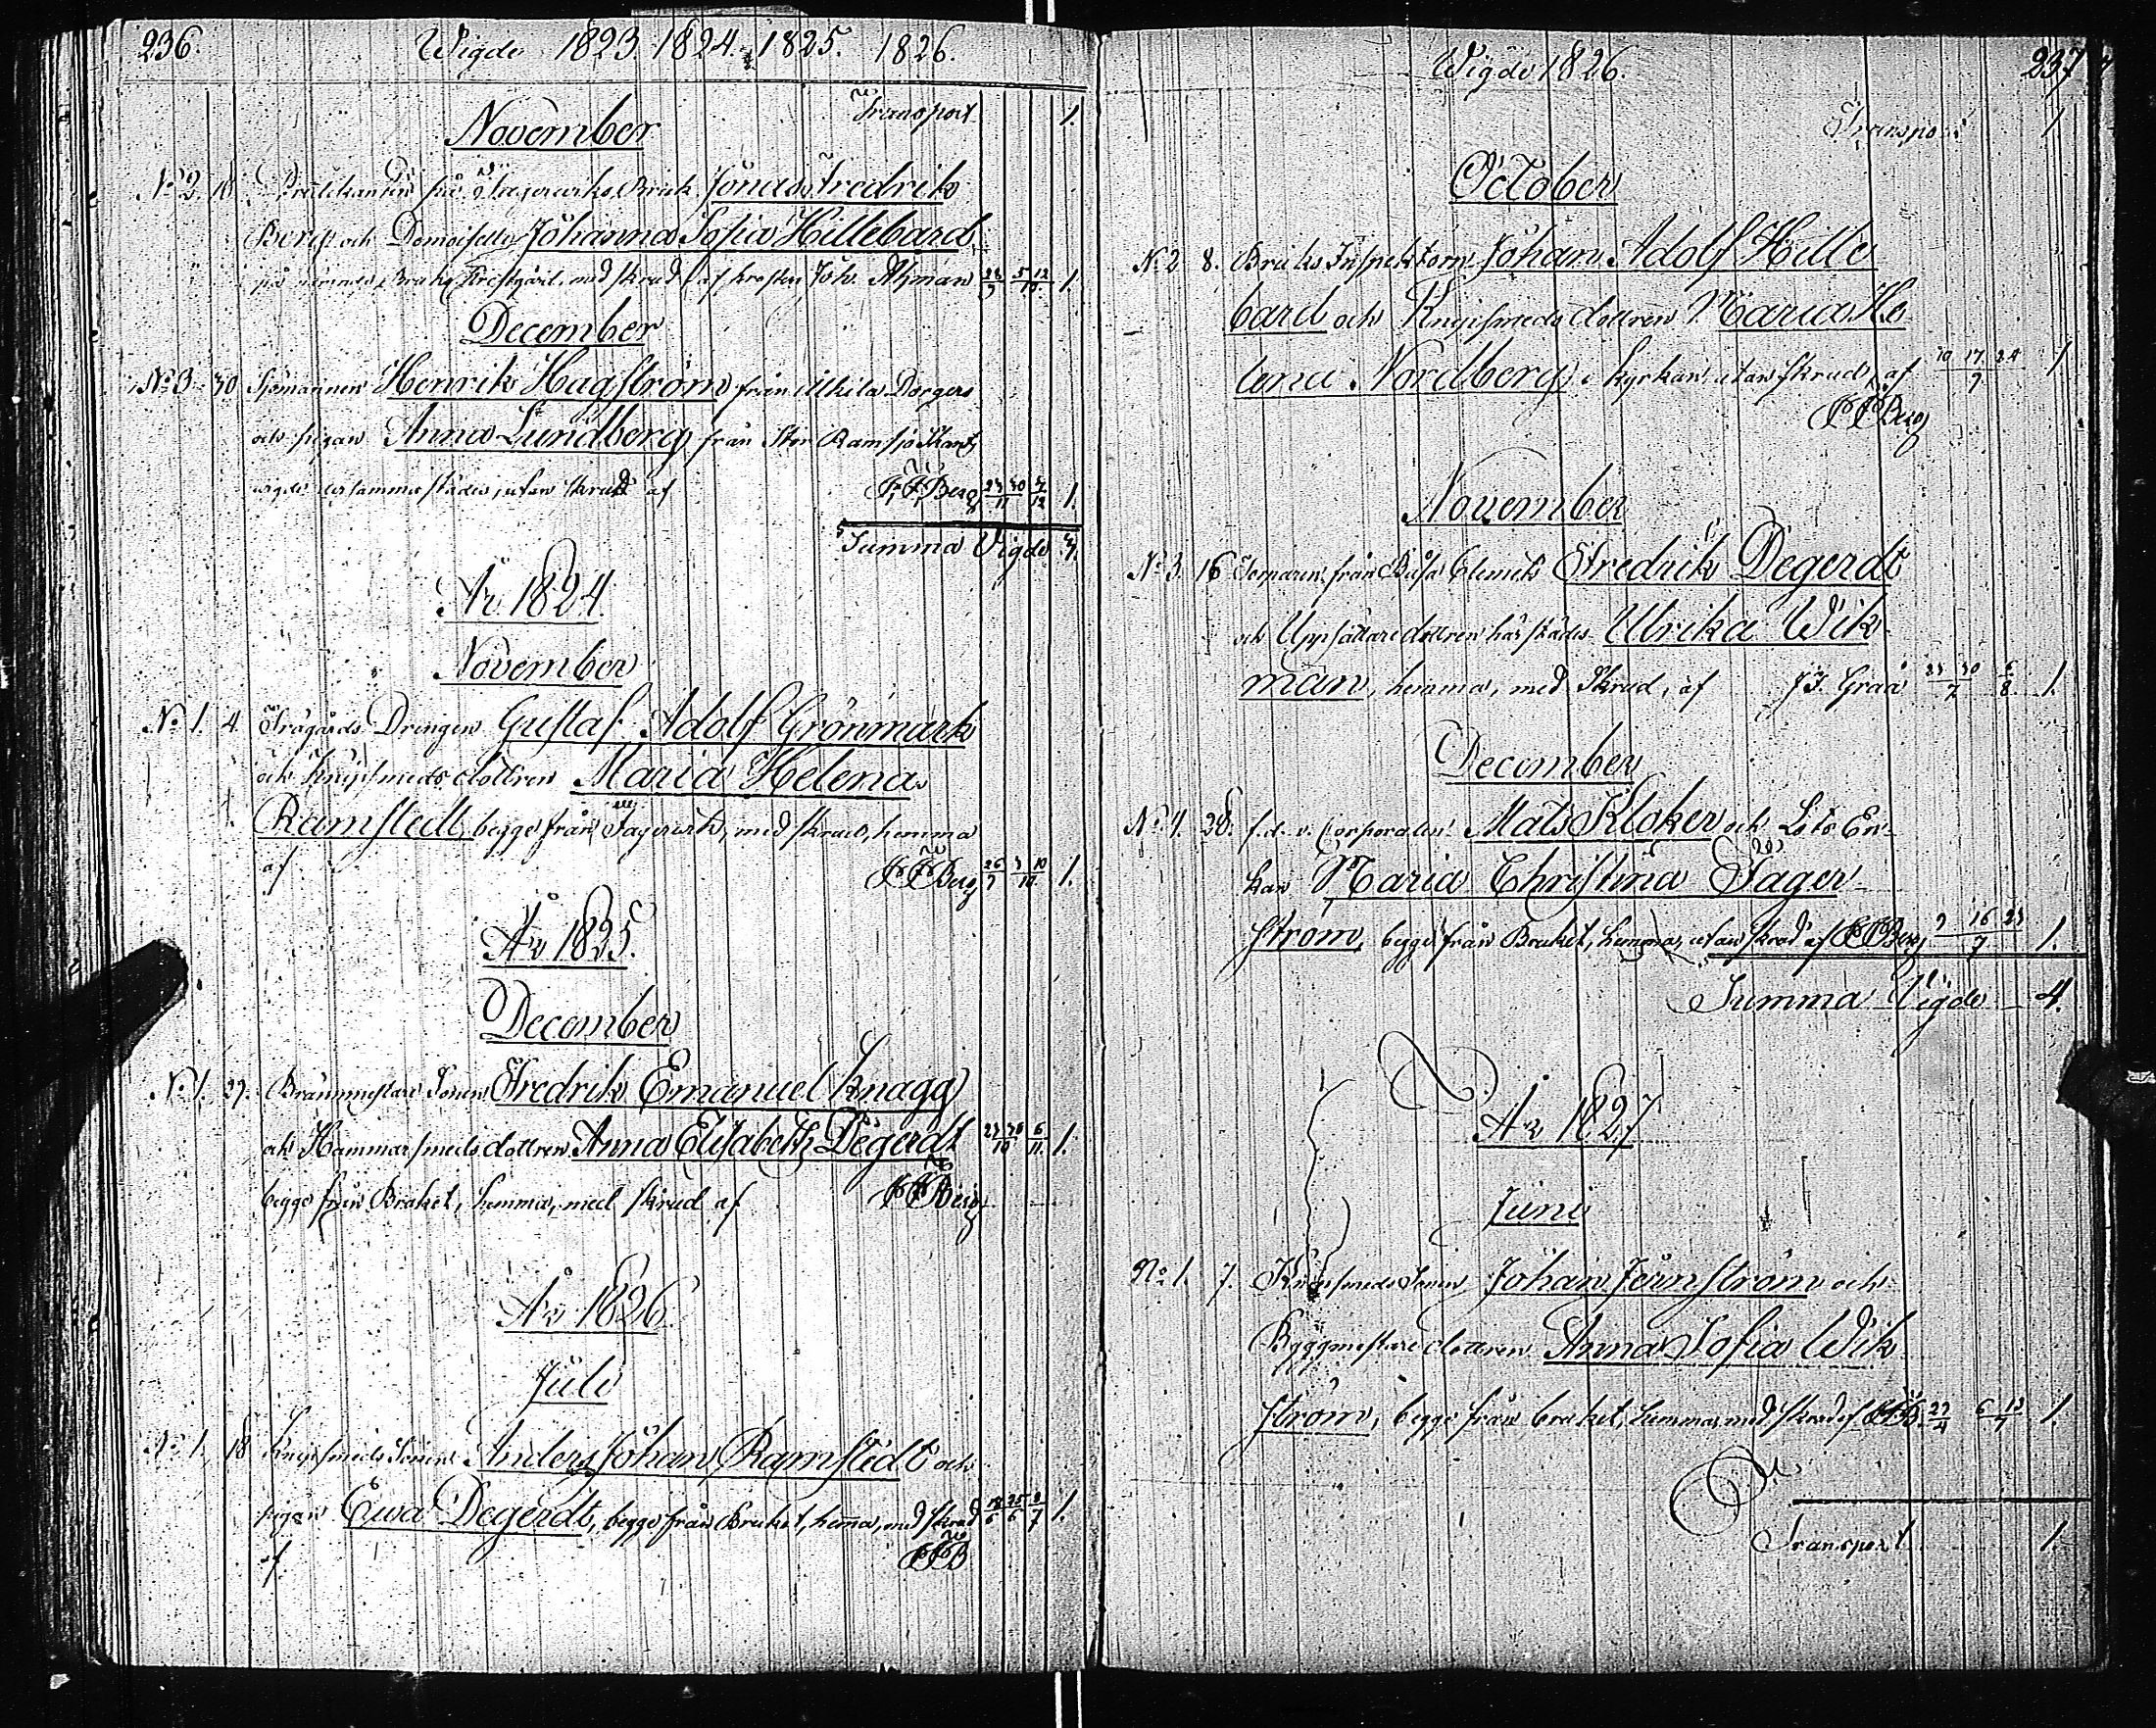 236. Wigde 1823. 1824. 1825. 1826.
Transport 1.
November
No 2. 18. Praktikanten från Fagerviks Bruk Jonas Fredrik
Berg och Demoiselle Johanna Sofia Hillebard
med skrud af Joh. Ahman 1.
December
No 3. 30. Sjömannen Henrik Hagström från
och pigan Anna Lundberg från Stor Ramsjö
utan skrud af F. F. Berg 23 30 7 11 12 1.
Summa Vigde 3.
År 1824.
November
No 1. 4. Trägårds Drengen Gustaf Adolf Grönmark
och Knipsmeds dottren Maria Helena
Ramstedt, begge från Fagervik, med skrud, hemma
af F. F. Berg 26 3 10 9 10 1.
År 1825.
December
No 1. 27. Sonen Fredrik Emanuel Knagg
och Hammarsmeds dottren Anna Elisabeth Degerdt 23 30 6 10 11 1.
begge från Bruket, hemma, med skrud af F. F. Berg
År 1826.
Juli
No 1. 18 Knipsmeds Sonen Anders Johan Ramstedt och
pigan Ewa Degerdt, begge från Bruket, hemma, med skrud 18 25 2 6 6 7 1.
af F. F. B
Wigde 1826. 237
Transport 1
October
No 2 8. Bruks Inspektorn Johan Adolf Hille
bard och Knipsmeds dottren Maria He
lena Nordberg i kyrkan, utan skrud, af 10 17 24 9 1
F. F. Berg
November
No 3. 16 från Båsa Fredrik Degerdt
och Uppsättare dottren härstädes Ulrika Wik
man, hemma, med Skrud, af J. J. Graá 23 30 6 7 8 1.
December
No 4. 28. f. d. v. Corporalen Mats Kloker och Lots En
kan Maria Christina Fager
ström, begge från Bruket, hemma, utan skrud af F. F. Berg 9 16 23 7 1.
Summa Vigde 4.
År 1827
Juni
No 1. 7. Knipsmeds Sonen Johan Jernström och
Byggmästare dottren Anna Sofia Wik
ström, begge från bruket, hemma, med skrud af F. F. B. 29 4 6 13 1.
Transport 1.